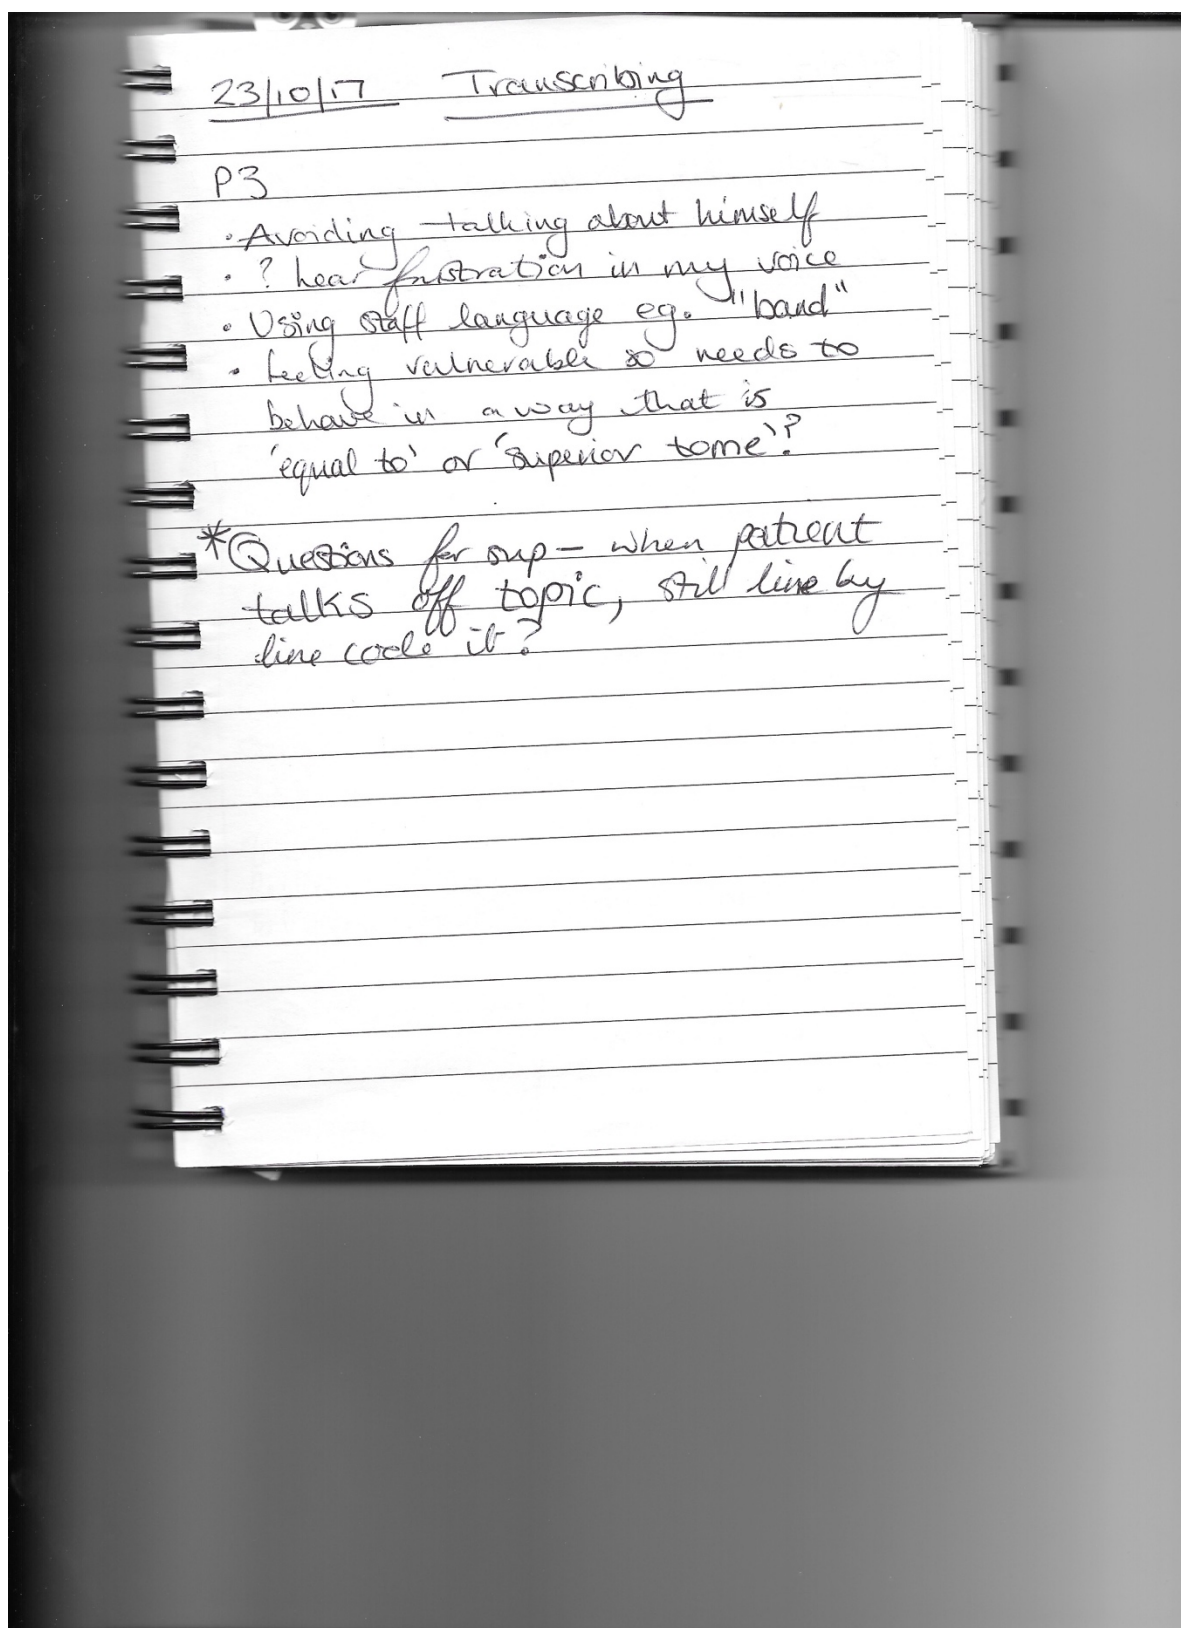 23/10/17 Transcribing
P3
· Avoiding talking about himself
· ? hear frustration in my voice
· Using staff language eg. "band"
· feeling vulnerable so needs to
behave in a way that is
'equal to' or 'superior to me'?
*Questions for sup - when patient
talks off topic, still line by
line code it?